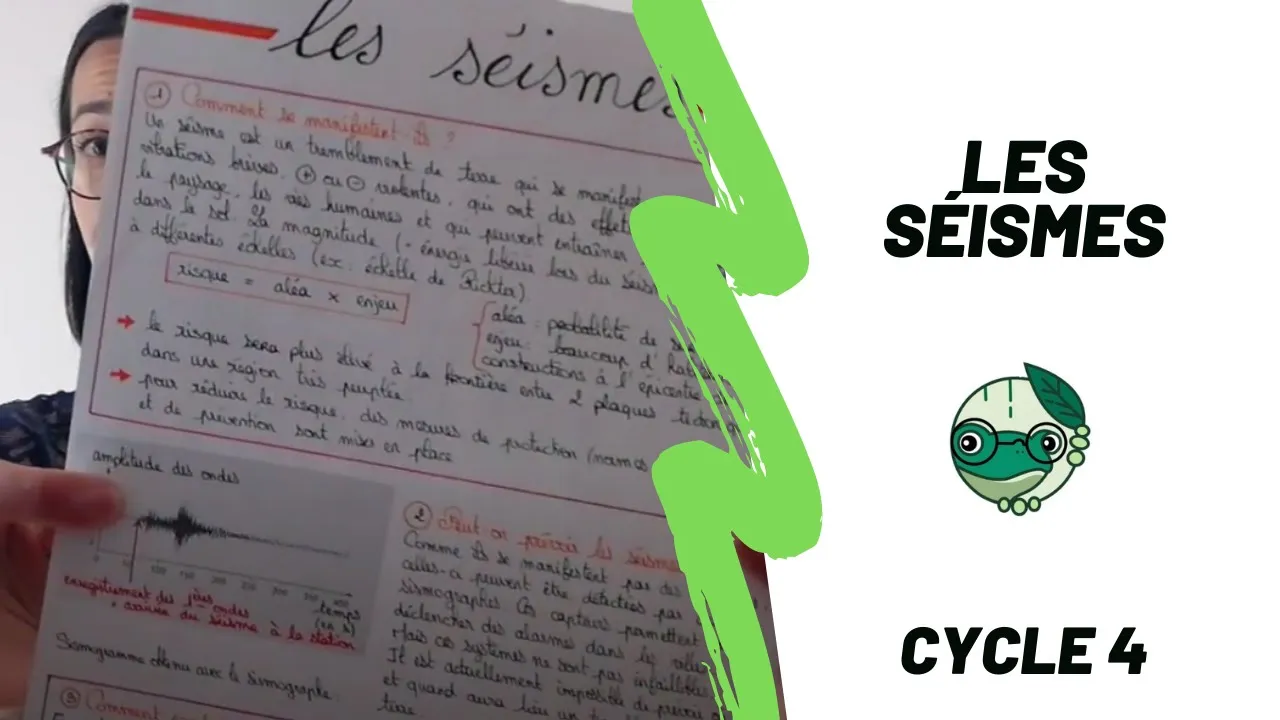 les séismes
1 Comment se manifestent-ils ?
Un séisme est un tremblement de terre qui se manifest
vibrations brèves, + ou - violentes, qui ont des effet
le paysage, les vies humaines et qui peuvent entraîner
dans le sol. La magnitude (= énergie libérée lors du séis
à différentes échelles (ex : échelle de Richter)
risque = aléa x enjeu
aléa : probabilité de
enjeu : beaucoup d'
constructions à l'épicentre
→ le risque sera plus élevé à la frontière entre 2 plaques
dans une région très peuplée
→ pour réduire le risque, des mesures de protection (normes
et de prévention sont mises en place
amplitude des ondes
0 50 100 150 200 250 300 350 400
temps
(en s)
enregistrement des 1ères ondes
= arrivée du séisme à la station
Sismogramme obtenu avec le sismographe.
2 Peut-on prévoir les séismes
Comme ils se manifestent par des
celles-ci peuvent être détectées par
sismographes. Ces capteurs permettent
déclencher des alarmes dans les villes
Mais ces systèmes ne sont pas infaillibles
Il est actuellement impossible de prévoir
et quand aura lieu un
terre.
3 Comment
LES
SÉISMES
CYCLE 4